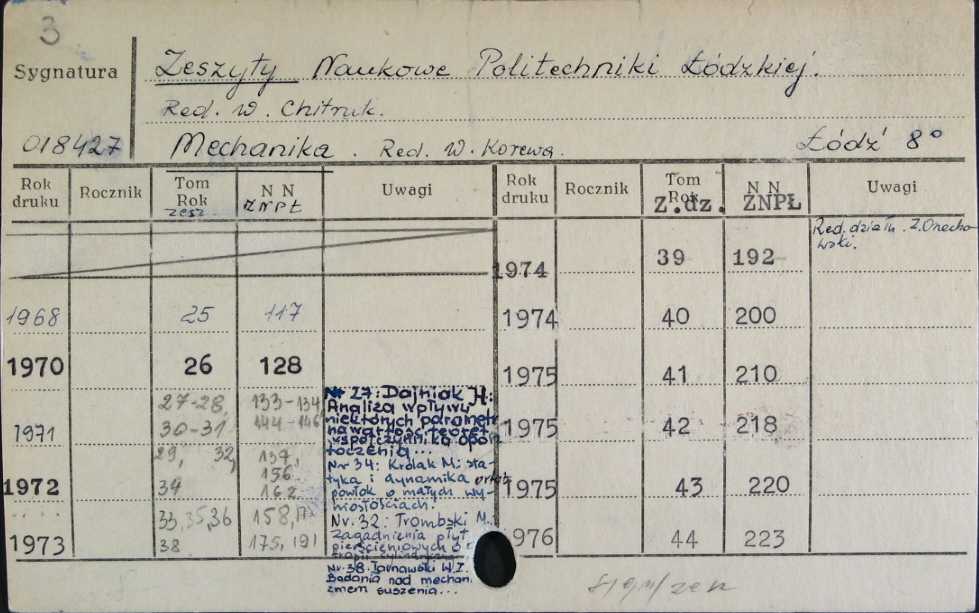 3
Sygnatura
Zeszyty Naukowe Politechniki Łódzkiej.
Red. W. Chitruk.
018427
Mechanika. Red. W. Korewa. Łódź 8°
Rok druku Rocznik Tom Rok zesz N N ZNPŁ Uwagi
Rok druku Rocznik Tom Rok Z.dz. N N ZNPŁ Uwagi
1968 25 117
1970 26 128
1971 27-28, 133-134
30-31 144-146
1972 29, 32,
156
34 162
33,35,36 158,
1973 38 175, 191
Nr 27: Dajniak H:
Analiza wpływu
niektórych parametr
na wartość teoret.
współczynnika opor
toczenia...
Nr 34: Królak M: sta-
tyka i dynamika ortot
powłok o małych wy-
niosłościach.
Nr. 32: Trombski M.
Zagadnienia płyt
pierścieniowych o
Nr. 38. Tarnawski W.Z.
Badania nad mechan.
zmem suszenia...
1974 39 192 Red. działu. Z. Orzecho-
wski.
1974 40 200
1975 41 210
1975 42 218
1975 43 220
976 44 223